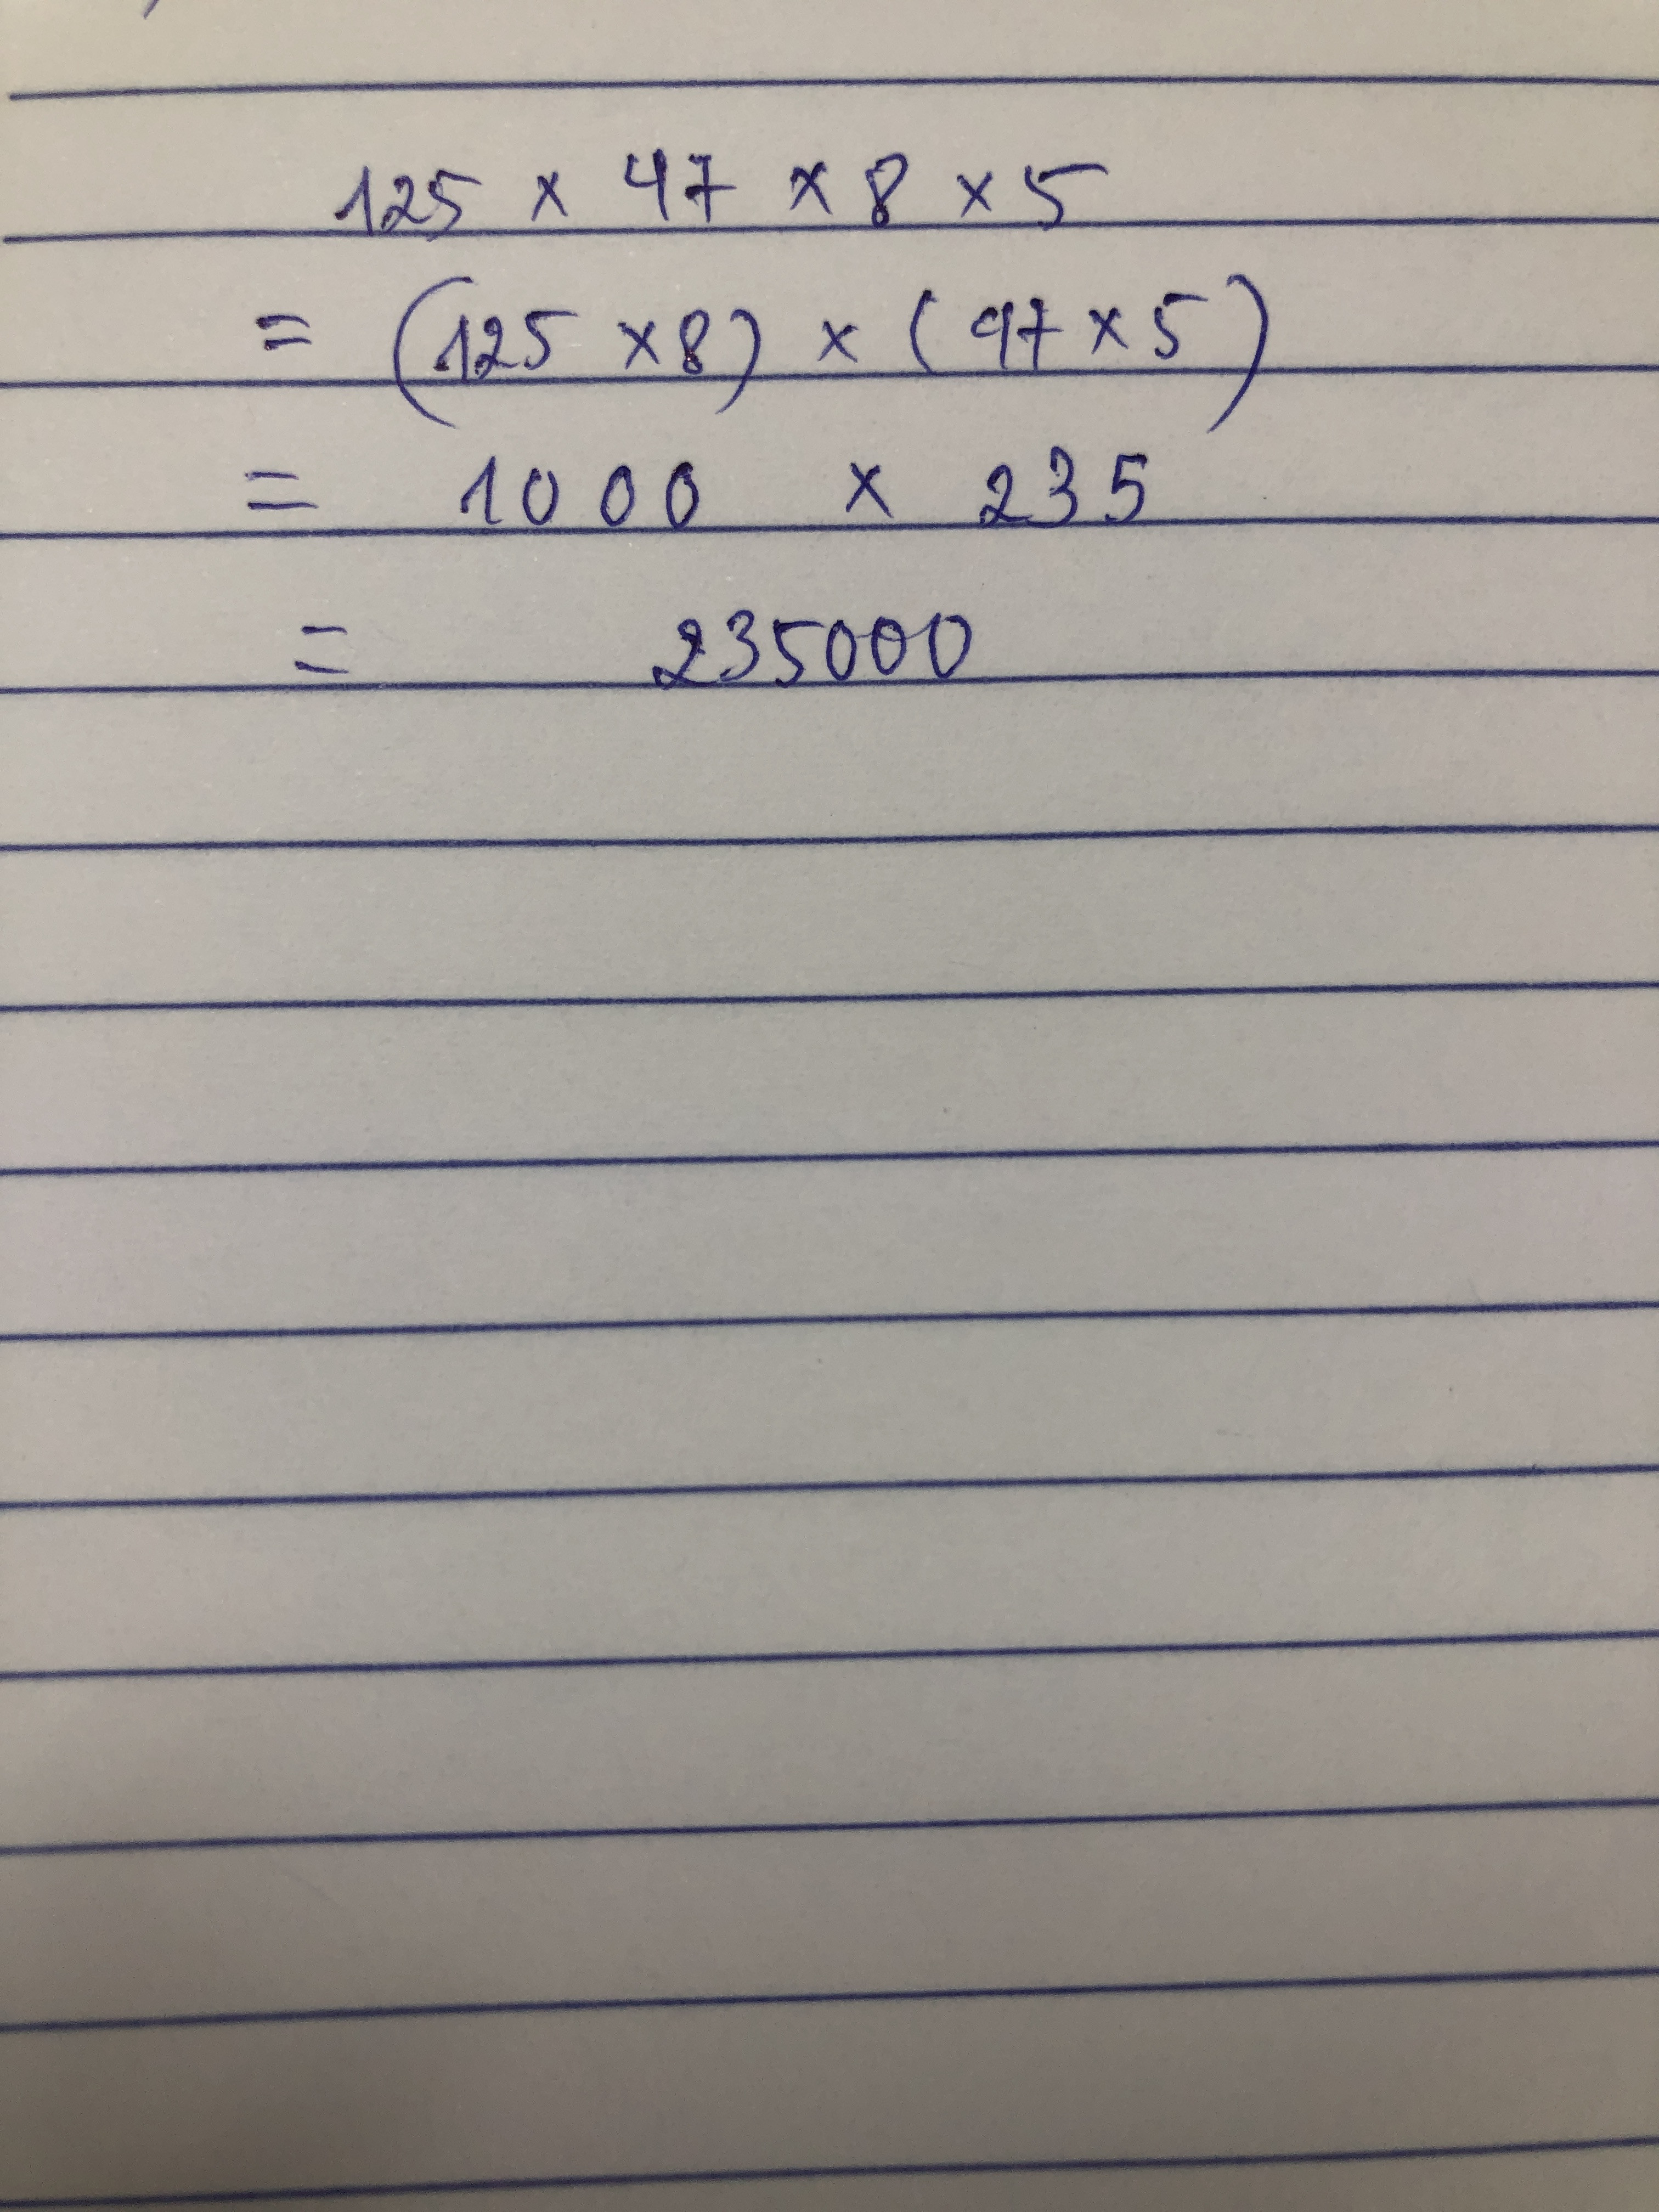 125 × 47 × 8 × 5
= (125 × 8) × (47 × 5)
= 1000 × 235
= 235000